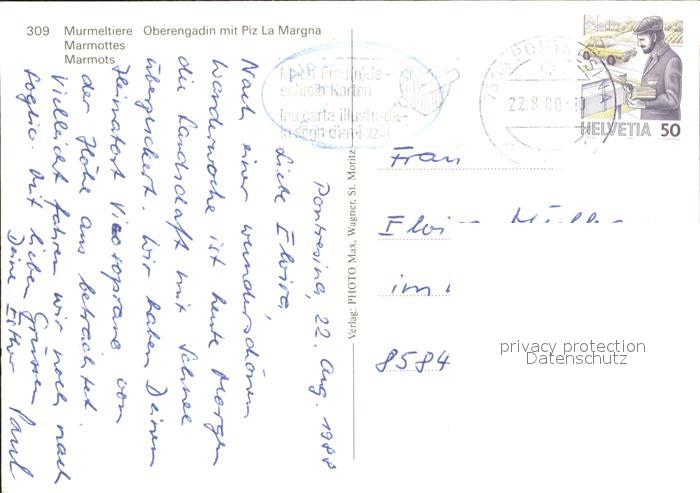 309 Murmeltiere Oberengadin mit Piz La Margna
Marmottes
Marmots
Nach Freunde-
schreib Karten
Ina carta illustrada-
in segn d'amicizia
7504 PONTRESINA
22.8.88-10
HELVETIA 50
Verlag: PHOTO Max, Wagner, St. Moritz
Pontresina, 22. Aug. 1988
Liebe Elvira,
Nach einer wunderschönen
Wanderwoche ist heute Morgen
die Landschaft mit Schnee
überzuckert. Wir haben Deinen
Heimatort Vicosoprano von
der Höhe aus betrachtet.
Vielleicht fahren wir noch nach
Soglio. Mit lieben Grüssen
Deine Esther Paul
Frau
Elvi Müller
im
8584
privacy protection
Datenschutz